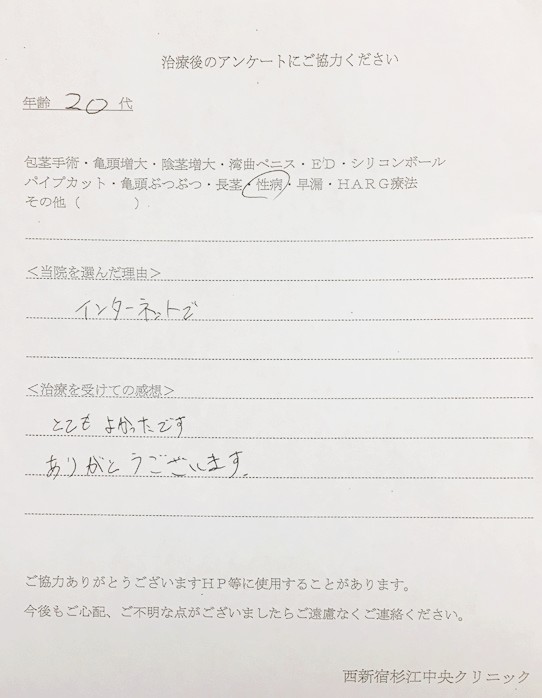 治療後のアンケートにご協力ください
年齢 20 代
包茎手術・亀頭増大・陰茎増大・湾曲ペニス・ED・シリコンボール
パイプカット・亀頭ぶつぶつ・長茎・性病・早漏・HARG療法
その他（　　　　）
＜当院を選んだ理由＞
インターネットで
＜治療を受けての感想＞
とてもよかったです
ありがとうございます。
ご協力ありがとうございますHP等に使用することがあります。
今後もご心配、ご不明な点がございましたらご遠慮なくご連絡ください。
西新宿杉江中央クリニック